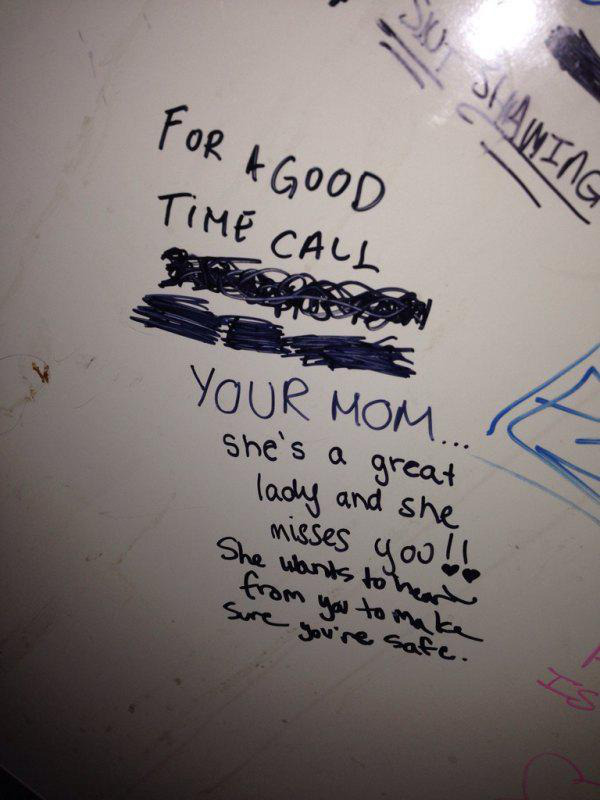 SLUT
SHAMING
FOR A GOOD
TIME CALL
YOUR MOM...
she's a great
lady and she
misses you!!
She wants to hear
from you to make
sure you're safe.
IS